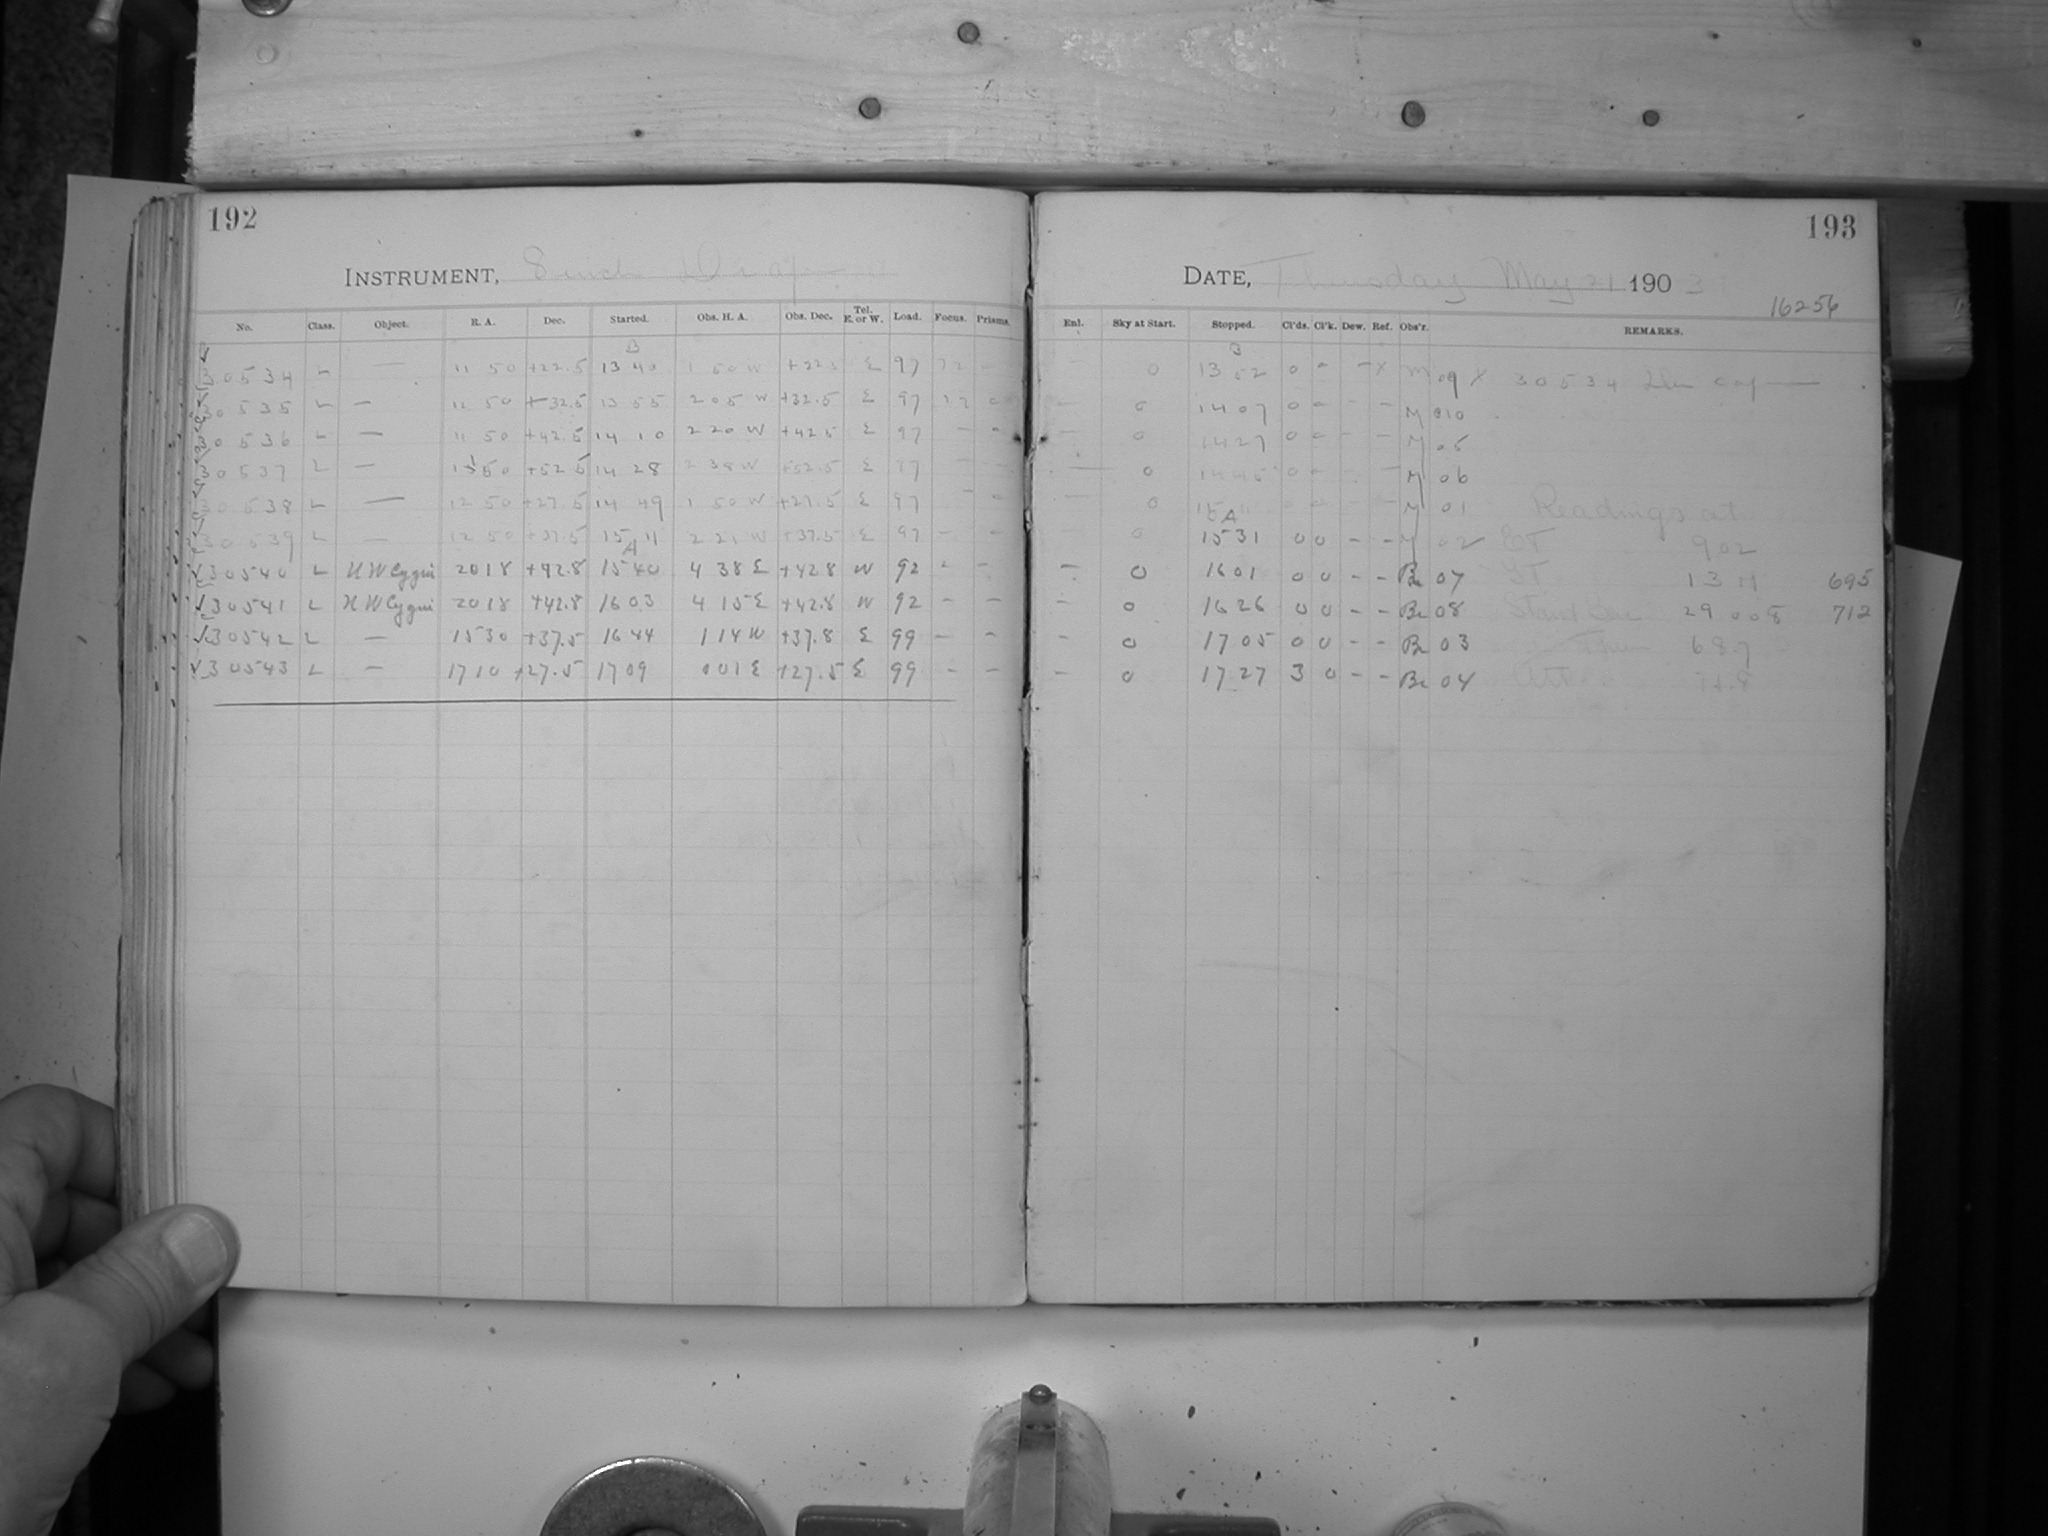 192
INSTRUMENT, 8 inch Draper
No. Class. Object. R. A. Dec. Started. Obs. H. A. Obs. Dec. Tel. E. or W. Load. Focus. Prisms.
B
30534 L — 11 50 +22.5 13 40 1 50 W +22.5 E 97 72 —
30535 L — 12 50 +32.5 13 55 2 05 W +32.5 E 97
30536 L — 11 50 +42.5 14 10 2 20 W +42.5 E 97 — -
30537 L — 50 +52.5 14 28 2 38 W +52.5 E 97 — —
30538 L — 12 50 +27.5 14 49 1 50 W +27.5 E 97 - -
30539 L — 12 50 +37.5 15 11 2 21 W +37.5 E 97 - -
A
30540 L U W Cygni 20 18 +42.8 15 40 4 38 E +42.8 W 92 - -
30541 L U W Cygni 20 18 +42.8 16 03 4 15 E +42.8 W 92 - -
30542 L — 15 30 +37.5 16 44 1 14 W +37.8 E 99 - -
30543 L — 17 10 +27.5 17 09 0 01 E +27.5 E 99 - -
193
DATE, Thursday May 21 1903
16256
Enl. Sky at Start. Stopped. Cl'ds. Cl'k. Dew. Ref. Obs'r. REMARKS.
B
- 0 13 52 0 - - x M 09 x 30534 cap
- 0 14 07 0 - - - M 010
- 0 14 27 0 - - - M 05
- 0 14 45 0 - - - M 06
- 0 15 11 0 0 - - M 01 Readings at
A
0 15 31 0 0 - - M 02 ET 902
- 0 16 01 0 0 - - Br 07 ST 13 11 695
- 0 16 26 0 0 - - Br 08 Stand Bar 29 008 712
- 0 17 05 0 0 - - Br 03 68.7
- 0 17 27 3 0 - - Br 04